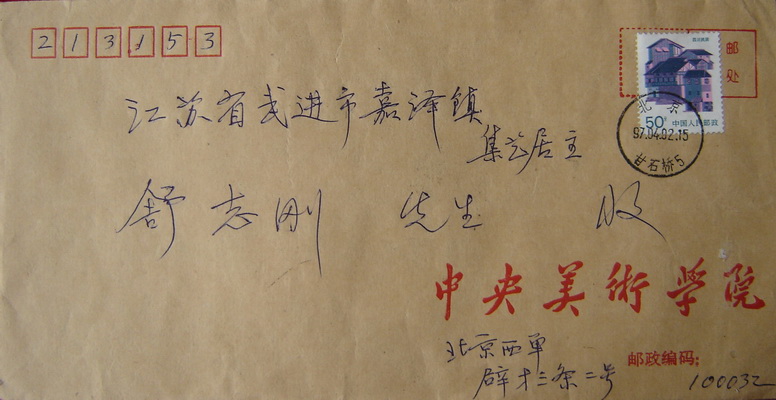 213153
邮
处
50分 中国人民邮政
北京
97.04.02.15
甘石桥5
江苏省武进市嘉泽镇
集艺居主
舒志刚 先生 收
中央美術学院
北京西单
辟才三条二号
邮政编码:
100032